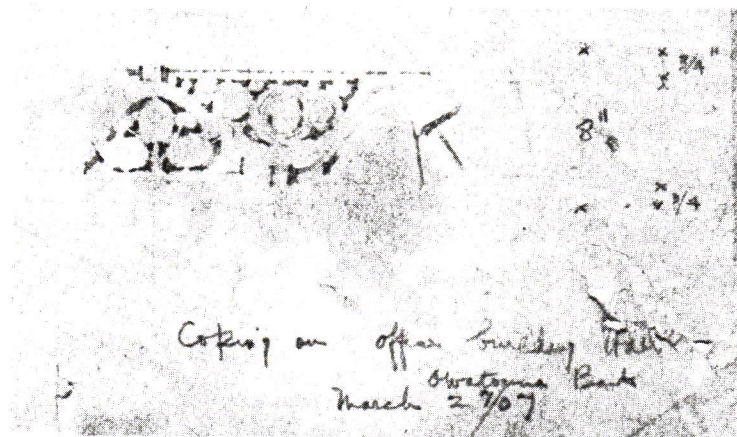 3/4"
8"
3/4
Coping on office building Wall
Owatonna Bank
March 2 1907